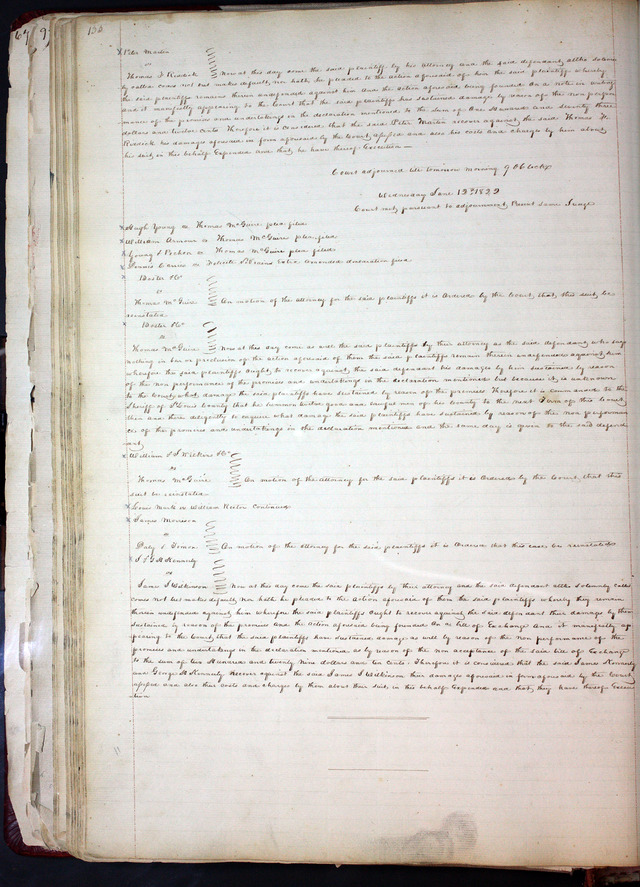 150
Peter Martin
vs
Thomas F Reddick Now at this day come the said plaintiff by his attorney and the said defendant altho solemn
ly called comes not but makes default, nor hath he pleaded to the action aforesaid of him the said plaintiff whereby
the said plaintiff remains therein undefended against him And the action aforesaid being founded on a note in writing
and it manifestly appearing to the Court that the said plaintiff has sustained damages by reason of the non perfor
mance of the promises and undertakings in the declaration mentioned to the sum of One Hundred and seventy three
dollars and twelve cents Therefore it is considered that the said Peter Martin recover against the said Thomas F.
Reddick his damages aforesaid in form aforesaid by the Court assessed and also his costs and charges by him about
his suit in this behalf Expended and that he have thereof Execution
Court adjourned till tomorrow morning 9 OClock
Wednesday June 19th 1822
Court met pursuant to adjournment, Present same Judge
Hugh Young vs Thomas McGuire plea filed
William Armour vs Thomas McGuire plea filed
Young & Bochon vs Thomas McGuire plea filed
amended declaration filed
Boster &c
vs
Thomas McGuire On motion of the attorney for the said plaintiffs it is Ordered by the Court, that this suit be
reinstated
Boster &c
vs
Thomas McGuire Now at this day come as well the said plaintiffs by their attorney as the said defendant, who says
nothing in bar or preclusion of the action aforesaid of them the said plaintiffs remain therein undefended against him
wherefore the said plaintiffs Ought to recover against the said defendant his damages by him sustained by reason
of the non performance of the promises and undertakings in the declaration mentioned but because it is unknown
to the Court what damage the said plaintiffs have sustained by reason of the promises Therefore it is commanded to the
Sheriff of St Louis County that he summon twelve good and lawful men of his County to the next Term of this Court
then and there diligently to enquire what damage the said plaintiffs have sustained by reason of the non performan
ce of the promises and undertakings in the declaration mentioned and the same day is given to the said defend
ant
William & J Wilkins &c
vs
Thomas McGuire On motion of the attorney for the said plaintiffs it is Ordered by the Court, that this
suit be reinstated
vs William continued
James Morrison
vs
On motion of the Attorney for the said plaintiffs it is Ordered that this case be reinstated
J & G H Kennerly
vs
James S Wilkinson Now at this day come the said plaintiffs by their attorney and the said defendant altho solemnly called
comes not but makes default, nor hath he pleaded to the action aforesaid of them the said plaintiffs whereby they remain
therein undefended against him wherefore the said plaintiffs Ought to recover against the said defendant their damages by them
sustained by reason of the promises And the Action aforesaid being founded On a bill of Exchange And it manifestly ap
pearing to the Court, that the said plaintiffs have sustained damage as well by reason of the non performance of the
promises and undertakings in the declaration mentioned as by reason of the non acceptance of the said bill of Exchange
to the sum of two Hundred and twenty Nine dollars and ten Cents. Therefore it is considered that the said James Kennerly
and George H Kennerly Recover against the said James S Wilkinson their damages aforesaid in form aforesaid by the Court,
assessed and also their costs and charges by them about their suit, in this behalf Expended and that they have thereof Execu
tion